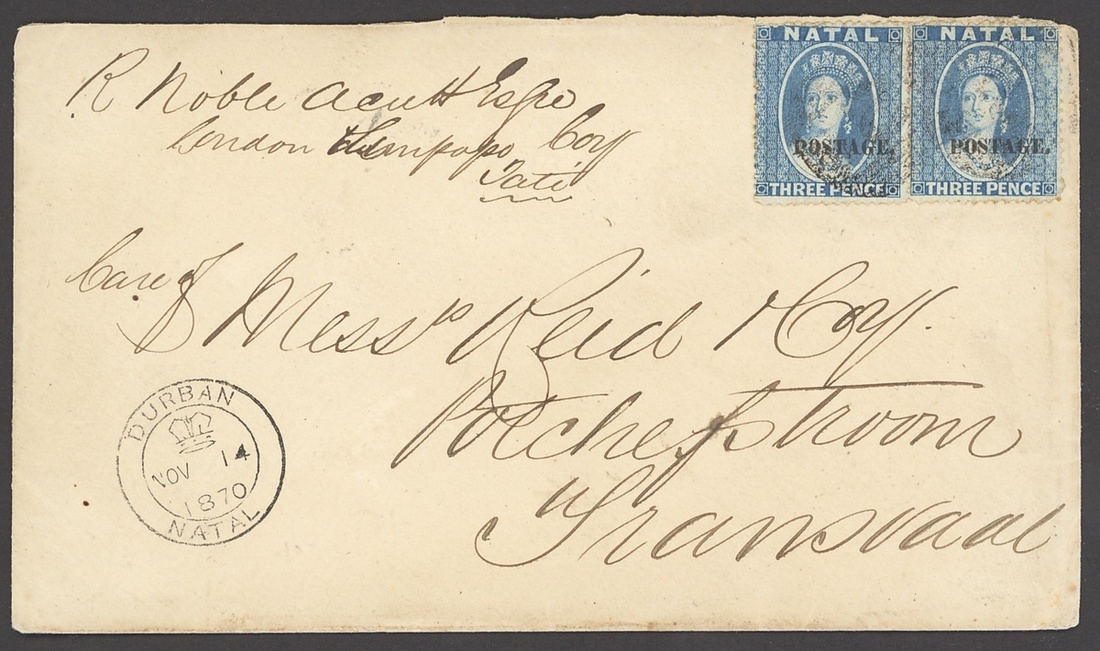 R Noble Acutt Esqre
London Limpopo Coy
Tati
Care of
Messrs Reid & Coy.
Potchefstroom
Transvaal
NATAL
POSTAGE.
THREE PENCE
NATAL
POSTAGE.
THREE PENCE
DURBAN
NOV 14
1870
NATAL